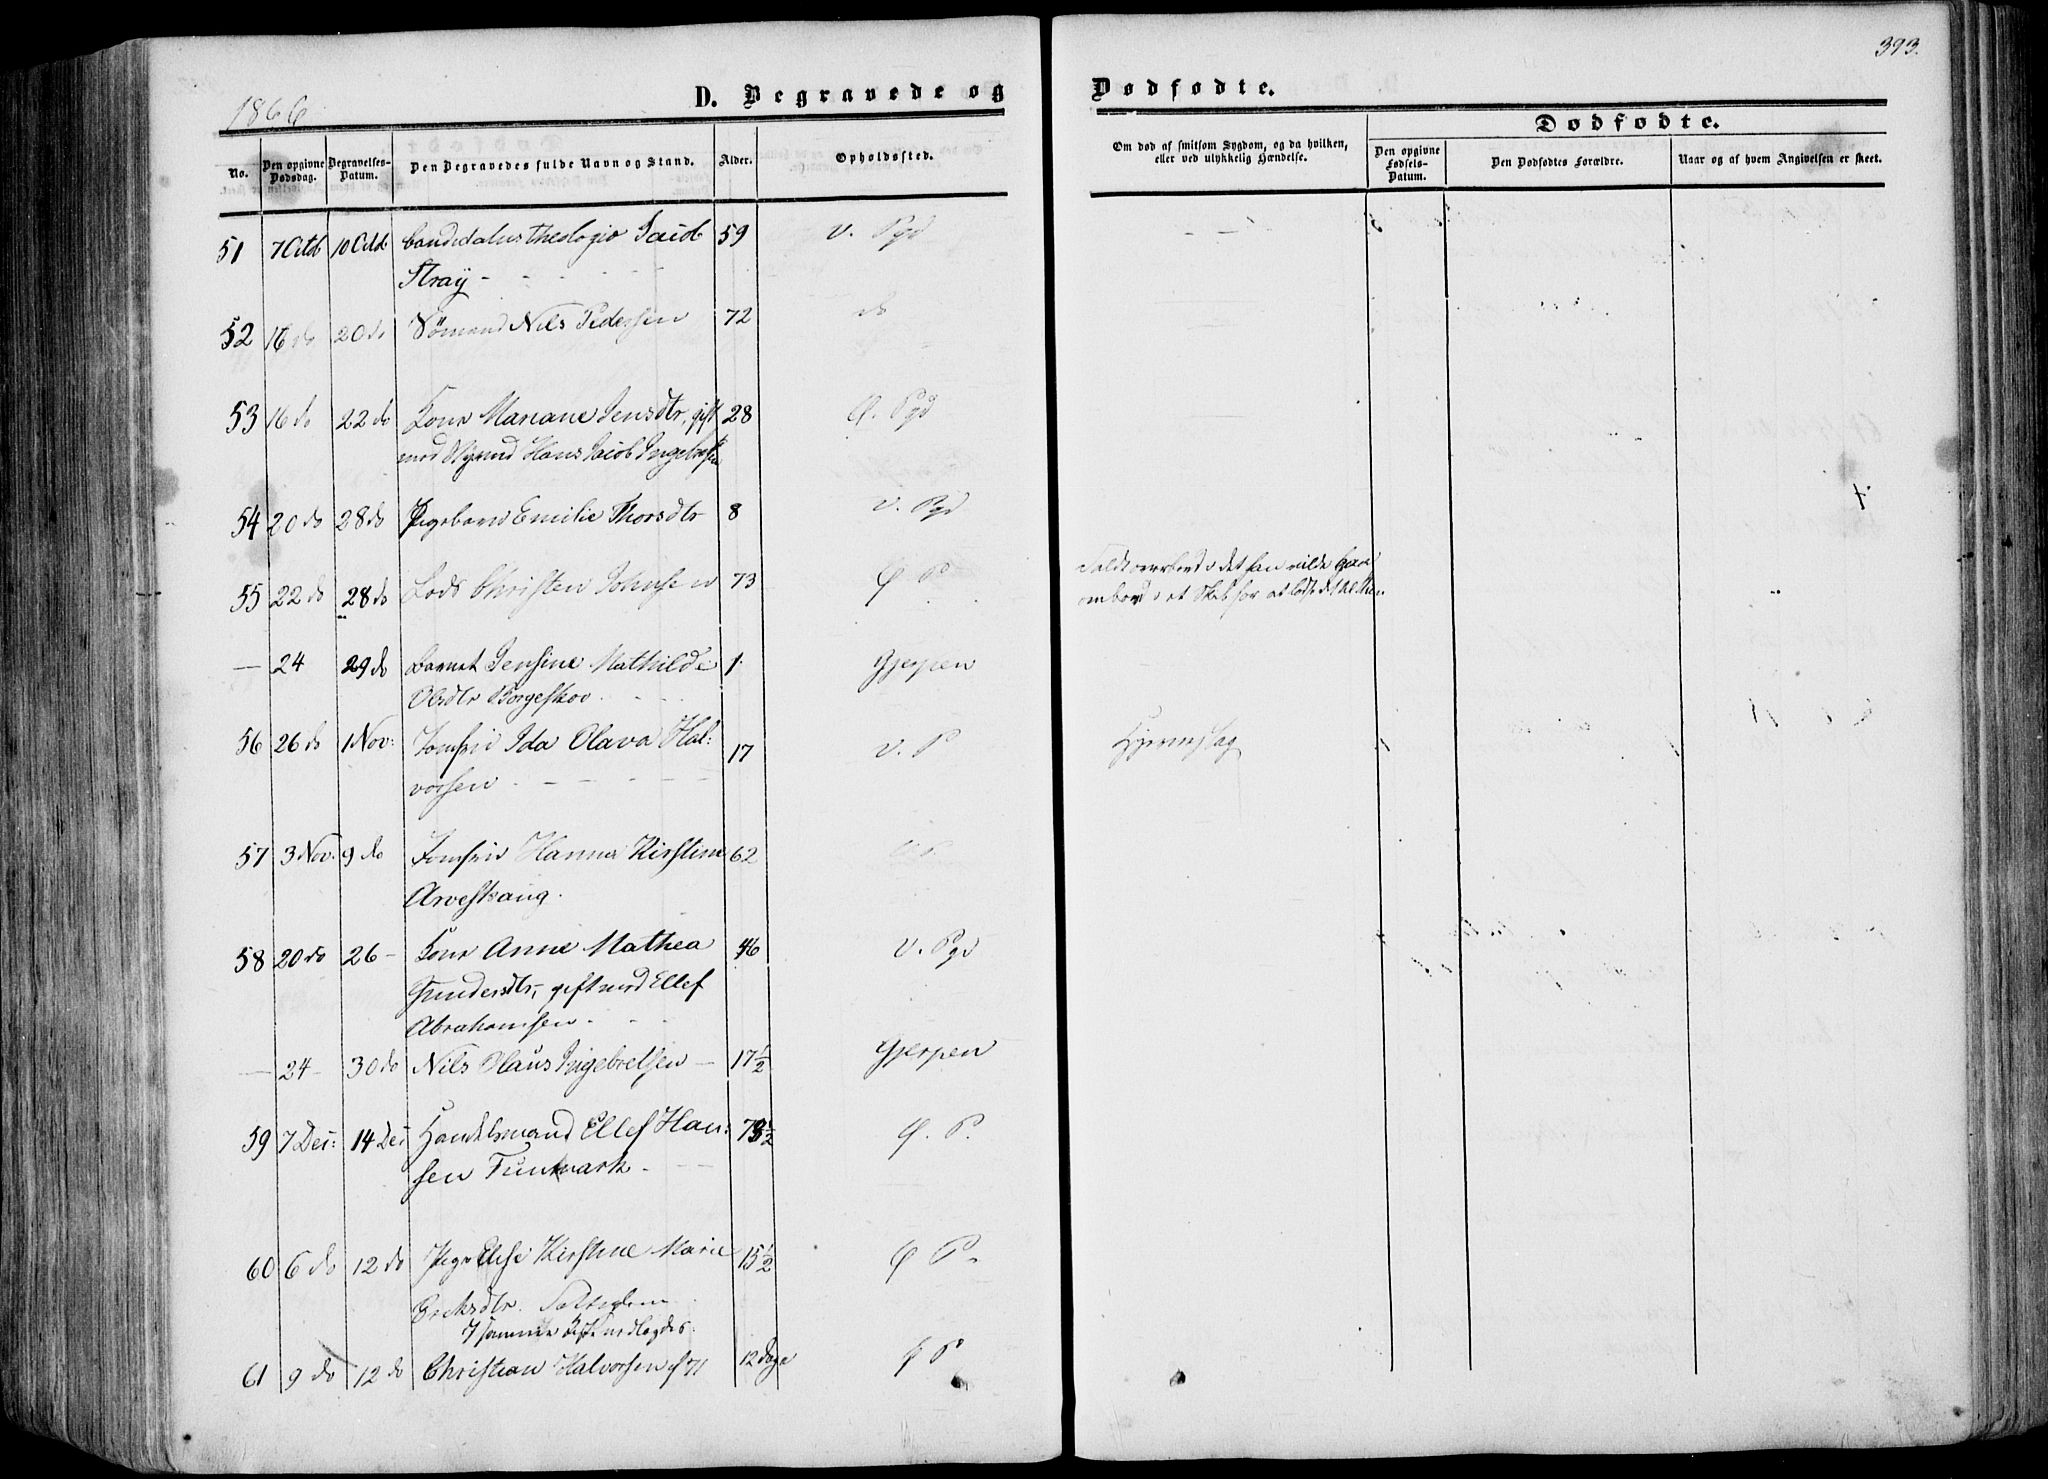 393.
1866
D. Begravede og
Dødfødte.
No.
Den opgivne Dødsdag.
Begravelses-Datum.
Den Begravedes fulde Navn og Stand.
Alder.
Opholdssted.
Om død af smitsom Sygdom, og da hvilken,
eller ved ulykkelig Hændelse.
Dødfødte.
Den opgivne Fødsels-Datum.
Den Dødfødtes Forældre.
Naar og af hvem Angivelsen er skeet.
51 7 Octb 10 Octb Candidatus theologiæ Jacob 59 V. Pgd
Stray -
52 16 do 20 do Sømand Nils Pedersen 72 do
53 16 do 22 do Kone Mariane Jensdtr, gift 28 Ø. Pgd
med Styrmd Hans Jacob Ingebretsen
54 20 do 28 do Pigebarn Emilie Thorsdtr 8 V. Pgd
55 22 do 28 do Lods Christen Johnsen 73 Ø P
Faldt overbord i det han vilde
ombord i et Skib for at lodse det
— 24 29 do Barnet Jensine Mathilde 1 Gjerpen
Olsdtr Borgeskov
56 26 do 1 Nov: Jomfru Ida Olava Hal: 17 V. P Hjerneslag
vorsen
57 3 Nov: 9 do Jomfru Hanna Kirstine 62
Arveskaug.
58 20 do 26 - Kone Anne Mathea 46 V. Pgd
Gundersdtr, gift med Ellef
Abrahamsen
— 24 - 30 do Nils Olaus Ingebretsen - 17 1/2 Gjerpen
59 7 Dec: 14 Dec Handelsmand Ellef Han: 73 1/2 Ø. P.
sen Funmark
60 6 do 12 do Pige Elise Kirstine Marie 15 1/2 Ø P.
Eriksdtr.
I samme Kiste nedlagdes
61 9 do 12 do Christian Halvorsen 12 Dage Ø P